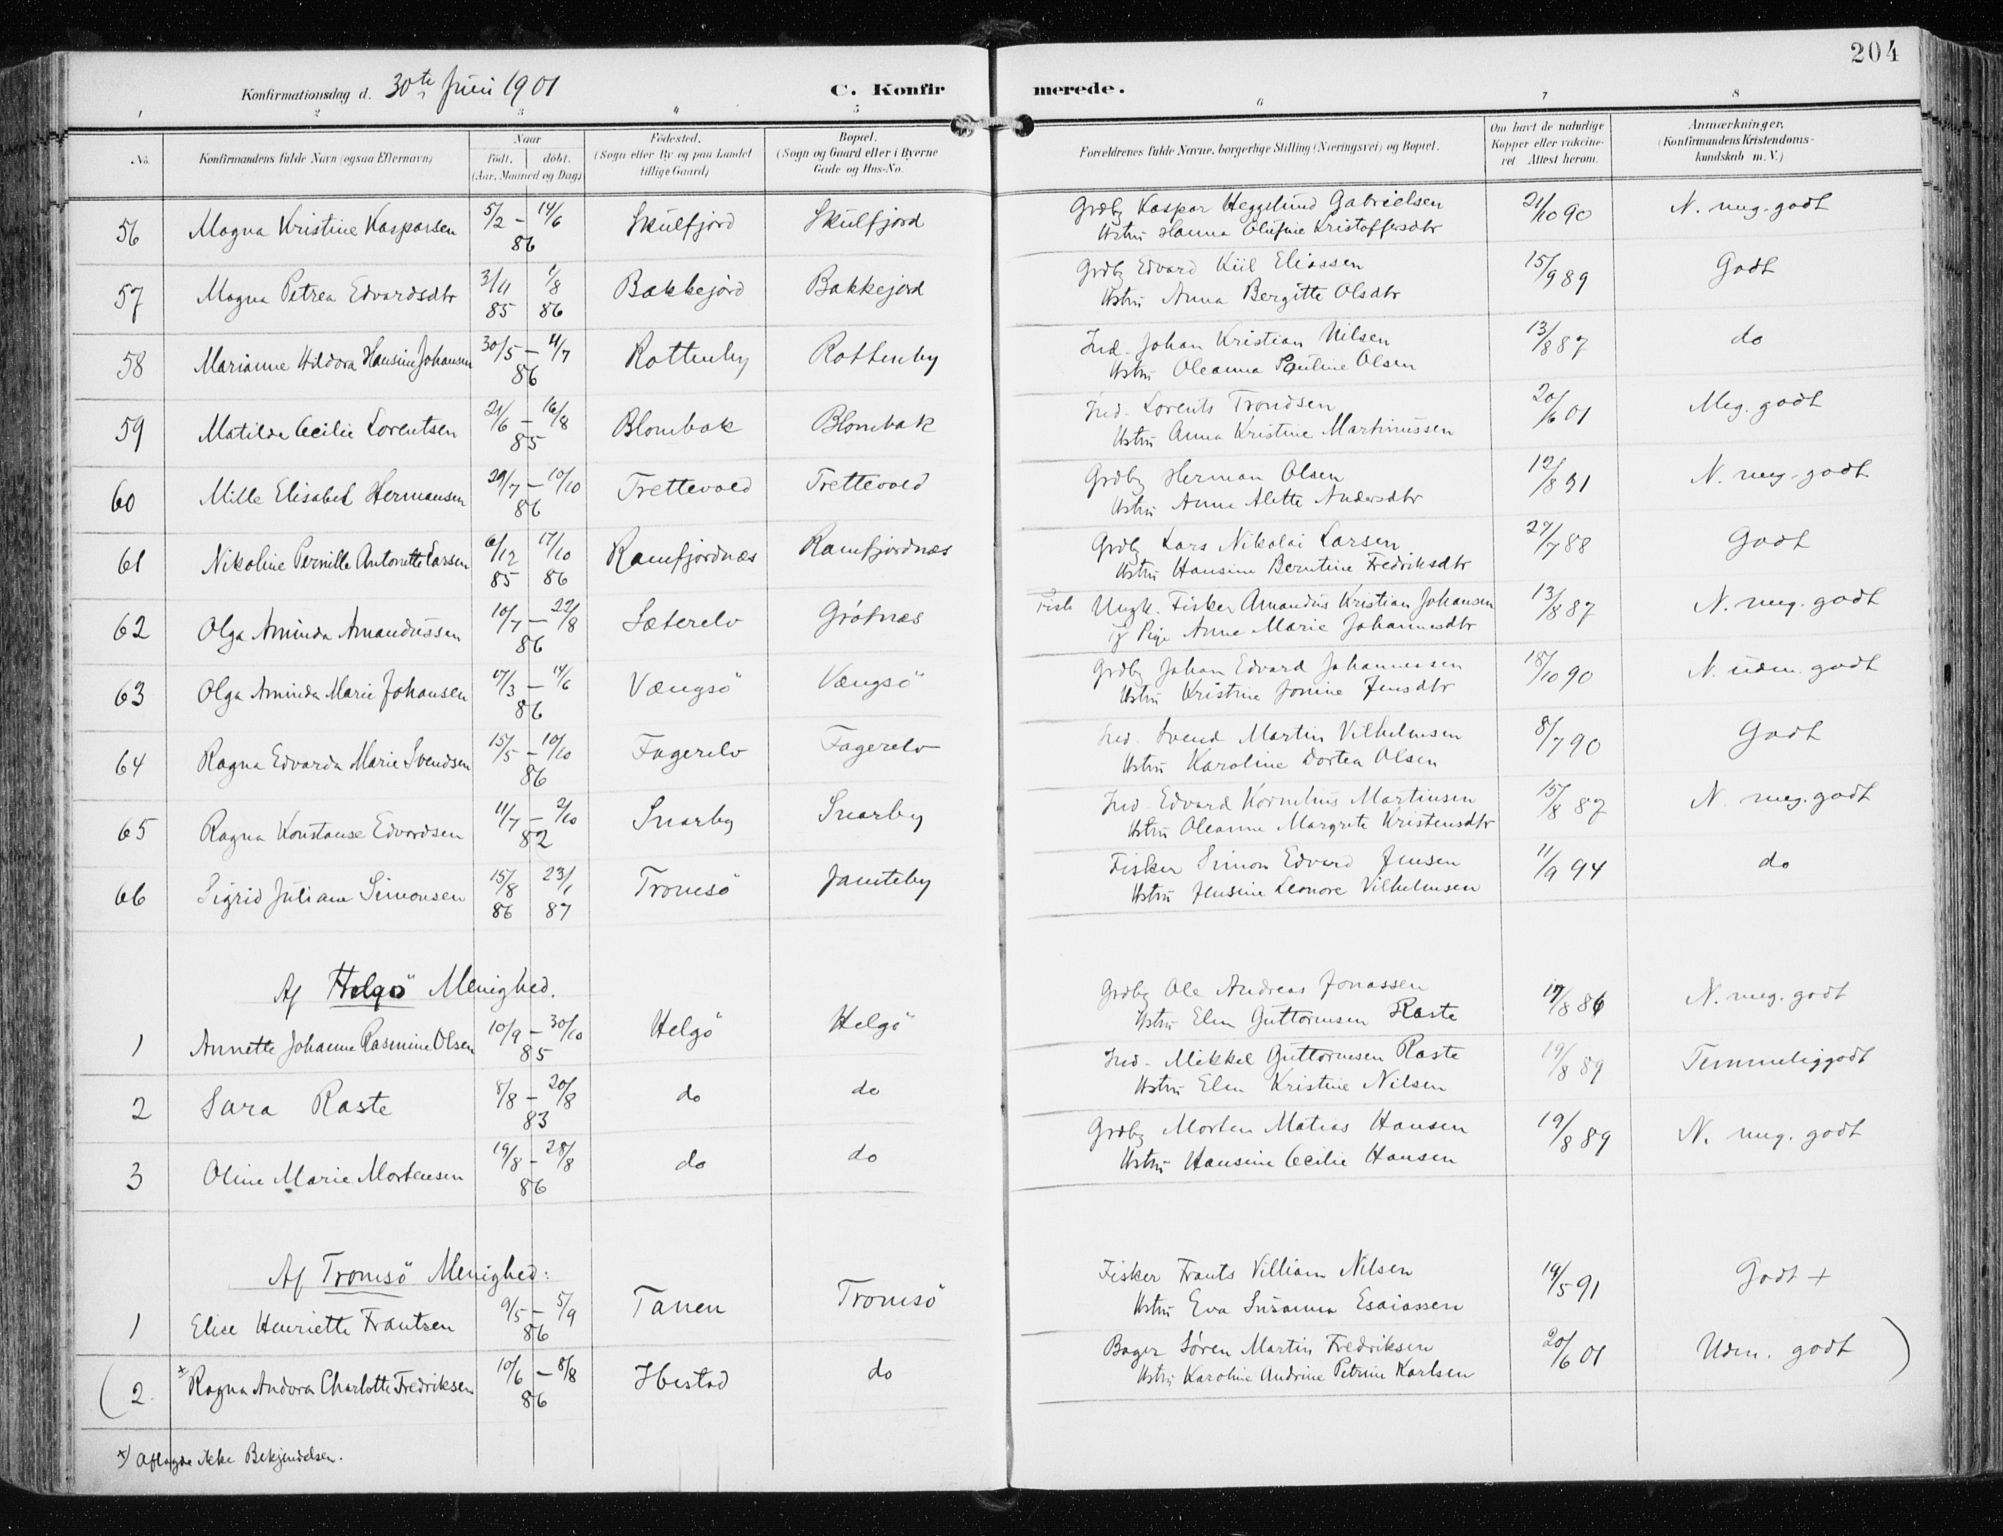 204
Konfirmationsdag d. 30te Juni 1901 C. Konfirmerede.
1 2 3 4 5 6 7 8
No. Konfirmandens fulde Navn (ogsaa Efternavn) Naar født. døbt. (Aar, Maaned og Dag) Fødested. (Sogn eller By og paa Landet tillige Gaard) Bopæl. (Sogn og Gaard eller i Byerne Gade og Hus-No. Forældrenes fulde Navne, borgerlige Stilling (Næringsvei) og Bopæl. Om havt de naturlige Kopper eller vakcineret Attest herom. Anmærkninger. (Konfirmandens Kristendomskundskab m. V.)
56 Magna Kristine Kasparsen 5/2 – 14/6 86 Skulfjord Skulfjord Grdbr Kaspar Heggelund Gabrielsen 21/10 90 N. meg. godt
Ustru Hanna Olufine Kristoffersdtr
57 Magna Petrea Edvardsdtr 3/11 85 1/8 86 Bakkejord Bakkejord Grdbr Edvard Kiil Eliassen 15/9 89 Godt
Hstru Anna Bergitte Olsdtr
58 Marianne Hildora Hansine Johansen 30/5 – 11/7 86 Rottenby Rottenby Ind. Johan Kristian Nilsen 13/8 87 do
Hstru Oleanna Pauline Olsen
59 Matilde Cecilie Lorentsen 21/6 – 16/8 85 Blombak Blombak Ind. Lorents Trondsen 20/6 01 Meg. godt
Hstru Anna Kristine Martinussen
60 Mille Elisabet Hermansen 29/7 – 10/10 86 Trettevold Trettevold Grdbr Herman Olsen 12/8 91 N. meg. godt
Hstru Anne Alette Andersdtr
61 Nikoline Pernille Antonette Larsen 6/12 85 17/10 86 Ramfjordnæs Ramfjordnæs Grdbr Lars Nikolai Larsen 27/7 88 Godt
Hstru Hansine Berntine Fredriksdtr
62 Olga Aminda Amandussen 10/7 – 22/8 86 Sæterelv Grøtnæs Ungk. Fisker Amandus Kristian Johansen 13/8 87 N. meg. godt
og Pige Anne Marie Johannesdtr
63 Olga Aminda Marie Johansen 17/3 – 14/6 86 Vængsö Vængsö Grdbr Johan Edvard Johannessen 18/10 90 N. udm. godt
Hstru Kristine Jonine Jensdtr
64 Ragna Edvarda Marie Svendsen 15/5 – 10/10 86 Fagerelv Fagerelv Ind. Svend Martin Vilhelmsen 8/7 90 Godt
Hstru Karoline Dortea Olsen
65 Ragna Konstanse Edvardsen 11/7 – 2/10 82 Snarby Snarby Ind. Edvard Kornelius Martinsen 15/8 87 N. meg. godt
Hstru Oleanne Margrete Kristensdtr
66 Sigrid Juliane Simonsen 15/8 86 23/1 87 Tromsö Jamteby Fisker Simon Edvard Jensen 11/9 94 do
Hstru Jensine Leonore Vilhelmsen
Af Helgö Menighed.
1 Annette Johanne Rasmine Olsen 10/9 – 30/10 85 Helgö Helgö Grdbr Ole Andreas Jonassen 17/8 86 N. meg. godt
Hstru Elen Guttormsen Raste
2 Sara Raste 8/8 – 20/8 83 do do Ind. Mikkel Guttormsen Raste 19/8 89 Temmeliggodt
Hstru Elen Kristine Nilsen
3 Oline Marie Mortensen 19/8 – 28/8 86 do do Grdbr Morten Matias Hansen 19/8 89 N. meg. godt
Hstru Hansine Cecilie Hansen
Af Tromsö Menighed:
1 Elise Henriette Frantsen 9/5 – 5/9 86 Tanen Tromsö Fisker Frants Villiam Nilsen 19/5 91 Godt +
Hstru Eva Susanna Esaiassen
( 2. × Ragna Andora Charlotte Fredriksen 10/6 – 8/8 86 Ibestad do Bager Søren Martin Fredriksen 20/6 01 Udm. godt )
Hstru Karoline Andrine Petrine Karlsen
×) Aflagde ikke Bekjendelsen.